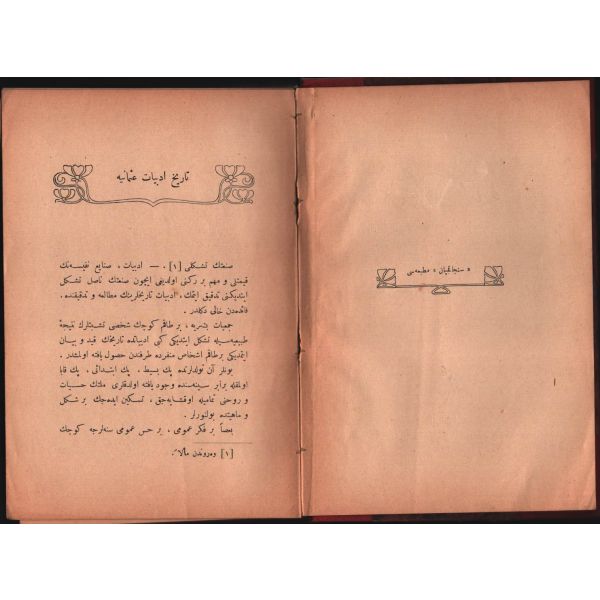 « سنجاقجیان » مطبعه‌سی
تاریخ ادبیات عثمانیه
صنعتك تشكلی [١] . — ادبیات ، صنایع نفیسه‌نك
قیمتلی و مهم بر ركنی اولدیغی ایچون صنعتك ناصل تشكل
ایتدیكنی تدقیق ایتمك ، ادبیات تاریخلرینك مطالعه و تدقیقنده .
فائده‌دن خالی دكلدر .
جمعیات بشریه ، بر طاقم كوچك شخصی تشبثلرك نتیجهٔ
طبیعیه‌سیله تشكل ایتدیكی كبی ادبیاتده تاریخك قید و بیان
ایتمدیكی برطاقم اشخاص منفرده طرفندن حصول یافته اولمشدر .
بونلر آن تولدلرنده پك بسیط ، پك ابتدائی ، پك قابا
اولمقله برابر سینه‌سنده وجود یافته اولدقلری ملتك حسیات
و روحنی تمامیله اوقشایه‌جق ، تسكین ایده‌جك بر شكل
و ماهیتده بولنورلر .
بعضاً بر فكر عمومی ، بر حس عمومی سنه‌لرجه كوچك
[١]